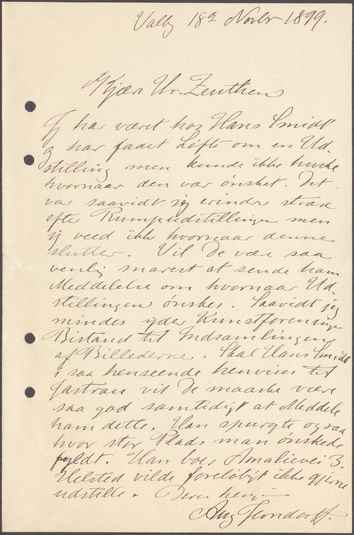 Valby 18de Novbr 1899.
Kjære Hr. Zeuthen
Jeg har været hos Hans Smidt
og har faaet Løfte om en Ud
stilling men kunde ikke huske
hvornaar den var ønsket. Det
var saavidt jeg erindrer strax
efter Kampudstillingen men
jeg veed ikke hvornaar denne
slutter. Vil De være saa
venlig snarest at sende ham
Meddelelse om hvornaar Ud
stillingen ønskes. Saavidt jeg
mindes yder Kunstforeningen
Bistand til Indsamlingen
af Billederne. Skal Hans Smidt
i saa henseende henvises til
Gastrau vil De maaske være
saa god samtidigt at Meddele
ham dette. Han spurgte ogsaa
hvor stor Plads man ønskede
fyldt. Han boer Amalievei 3.
Helsted vilde foreløbigt ikke gjerne
udstille. Deres
Aug Jerndorff.